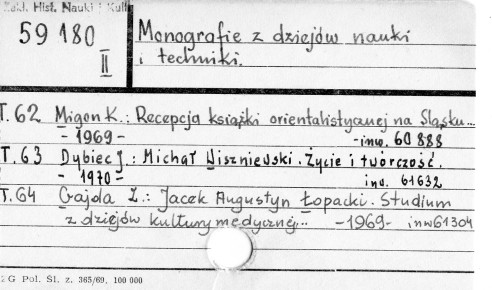 Zakł. Hist. Nauki i Kult
59 180
II
Monografie z dziejów nauki
i techniki.
T. 62 Migon K.: Recepcja książki orientalistycznej na Śląsku...
- 1969 - -inw. 60 888
T. 63 Dybiec J.: Michał Wiszniewski. Życie i twórczość.
- 1970 - inw. 61632
T. 64 Gajda Z.: Jacek Augustyn Łopacki. Studium
z dziejów kultury medycznej... -1969- inw 61304
ZG Pol. Śl. z. 365/69. 100 000